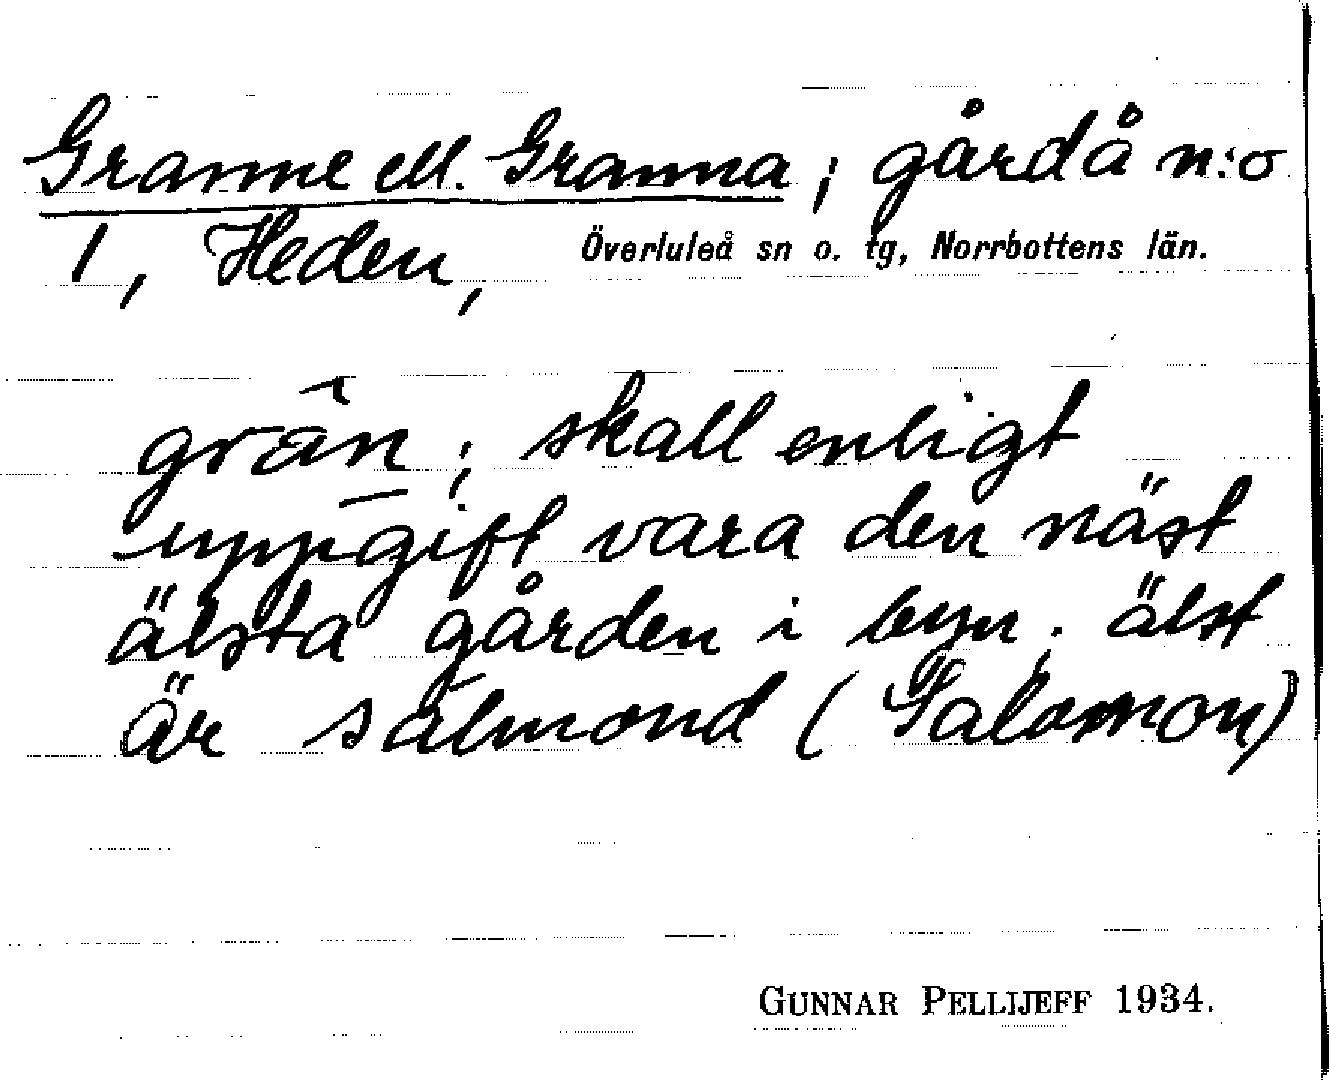 Granne ell. Granna ; gårdå n:o
1, Heden, Överluleå sn o. tg, Norrbottens län.
grân ; skall enligt
uppgift vara den näst
älsta gården i byn ; älst
är salmond (Salomon)
GUNNAR PELLIJEFF 1934.